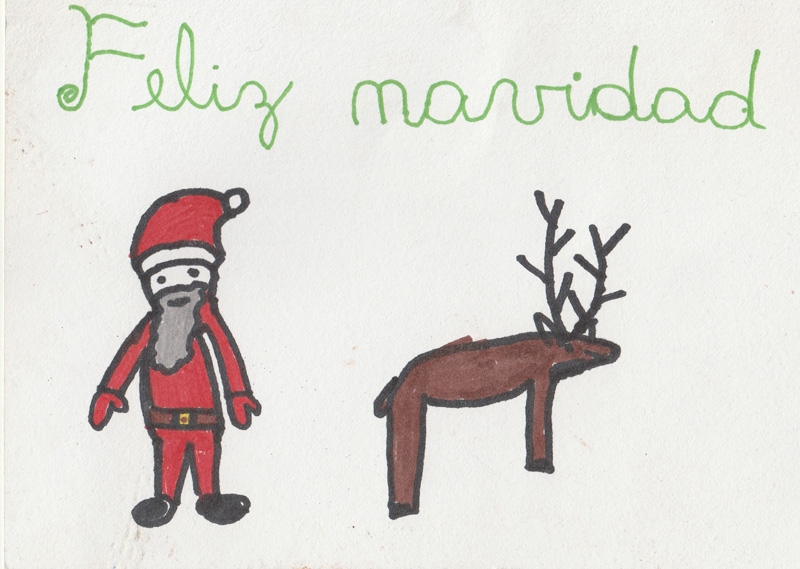 Feliz navidad